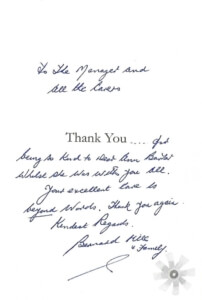 To The Manager and
all the Carers
Thank You .... for
being so kind to dear Ann
Whilst she was with you all.
Your excellent care is
beyond words. Thank you again.
Kindest Regards.
Bernard
& Family